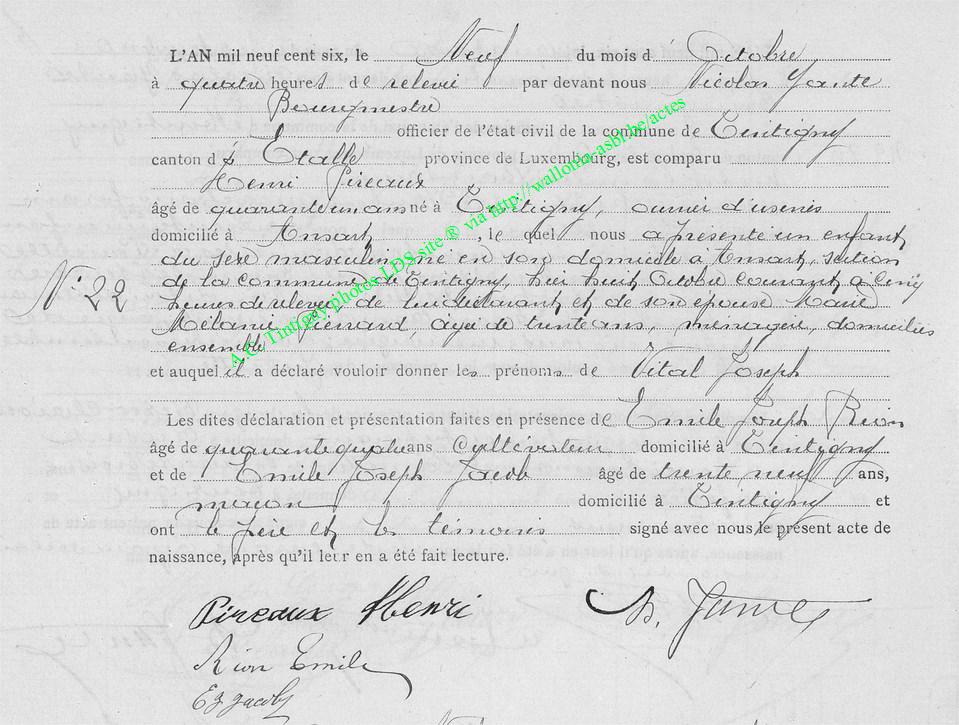 L'AN mil neuf cent six, le Neuf du mois d' Octobre
à quatre heures de relevée par devant nous Nicolas
Bourgmestre
officier de l'état civil de la commune de Tintigny
canton d' Etalle province de Luxembourg, est comparu
Henri Pireaux
âgé de quarante un ans né à Tintigny, ouvrier d'usines
domicilié à Ansart, le quel nous a présenté un enfant
du sexe masculin, né en son domicile à Ansart, section
de la commune de Tintigny, hier huit Octobre courant, à cinq
N° 22
heures de relevée, de lui déclarant et de son épouse Marie
Mélanie Pierrard, âgée de trente ans, ménagère, domiciliés
ensemble
et auquel il a déclaré vouloir donner les prénoms de Vital Joseph
Les dites déclaration et présentation faites en présence de Emile Joseph Rion
âgé de quarante quatre ans Cultivateur domicilié à Tintigny
et de Emile Joseph Jacob âgé de trente neuf ans,
maçon domicilié à Tintigny et
ont le père et les témoins signé avec nous le présent acte de
naissance, après qu'il leur en a été fait lecture.
Pireaux Henri
N.
Rion Emile
EJ Jacob
A.C. Tintigny photos LDS site ® via http://wallonia-asbl.be/actes